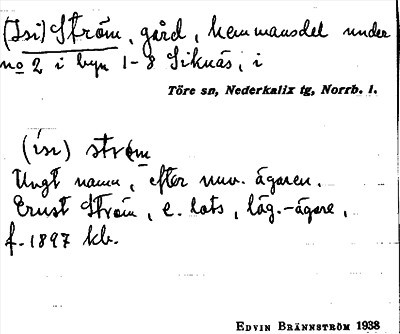 (Isi) Ström, gård, hemmansdel under
no 2 i byn 1-8 Siknäs, i
Töre sn, Nederkalix tg, Norrb. l.
(isi) strøm
Ungt namn, efter nuv. ägaren,
Ernst Ström, e. lots, läg.-ägare,
f. 1897 kb.
EDVIN BRÄNNSTRÖM 1938